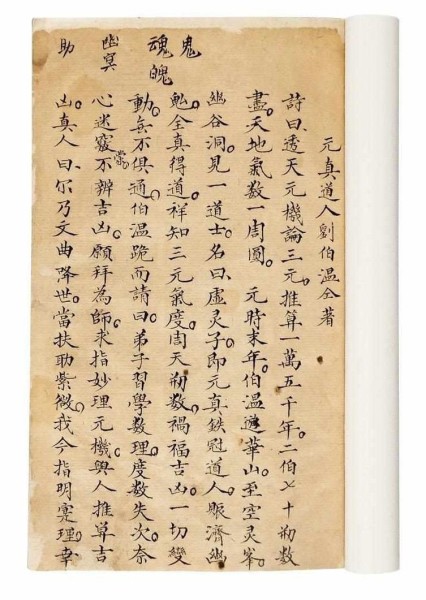 元真道人劉伯温仝著
詩曰、透天元機論三元。推算一萬五千年。二伯七十刱数
盡。天地氣数一周圓。 元時末年。伯温遊華山。至空灵峯。
幽谷洞。見一道士。名曰虛灵子。即元真鉄冠道人。賑濟幽
全真得道。祥知三元氣度。周天刱数。禍福吉凶。一切變
動。無不俱通。伯温跪而請曰。弟子習學数理。度数失次。奈
心迷竅。常不辨吉凶。願拜為師。求指妙理元機。與人推算吉
凶。真人曰、尔乃文曲降世。當扶助紫微。我今指明寔理。幸
鬼
魂
魄
幽冥
助